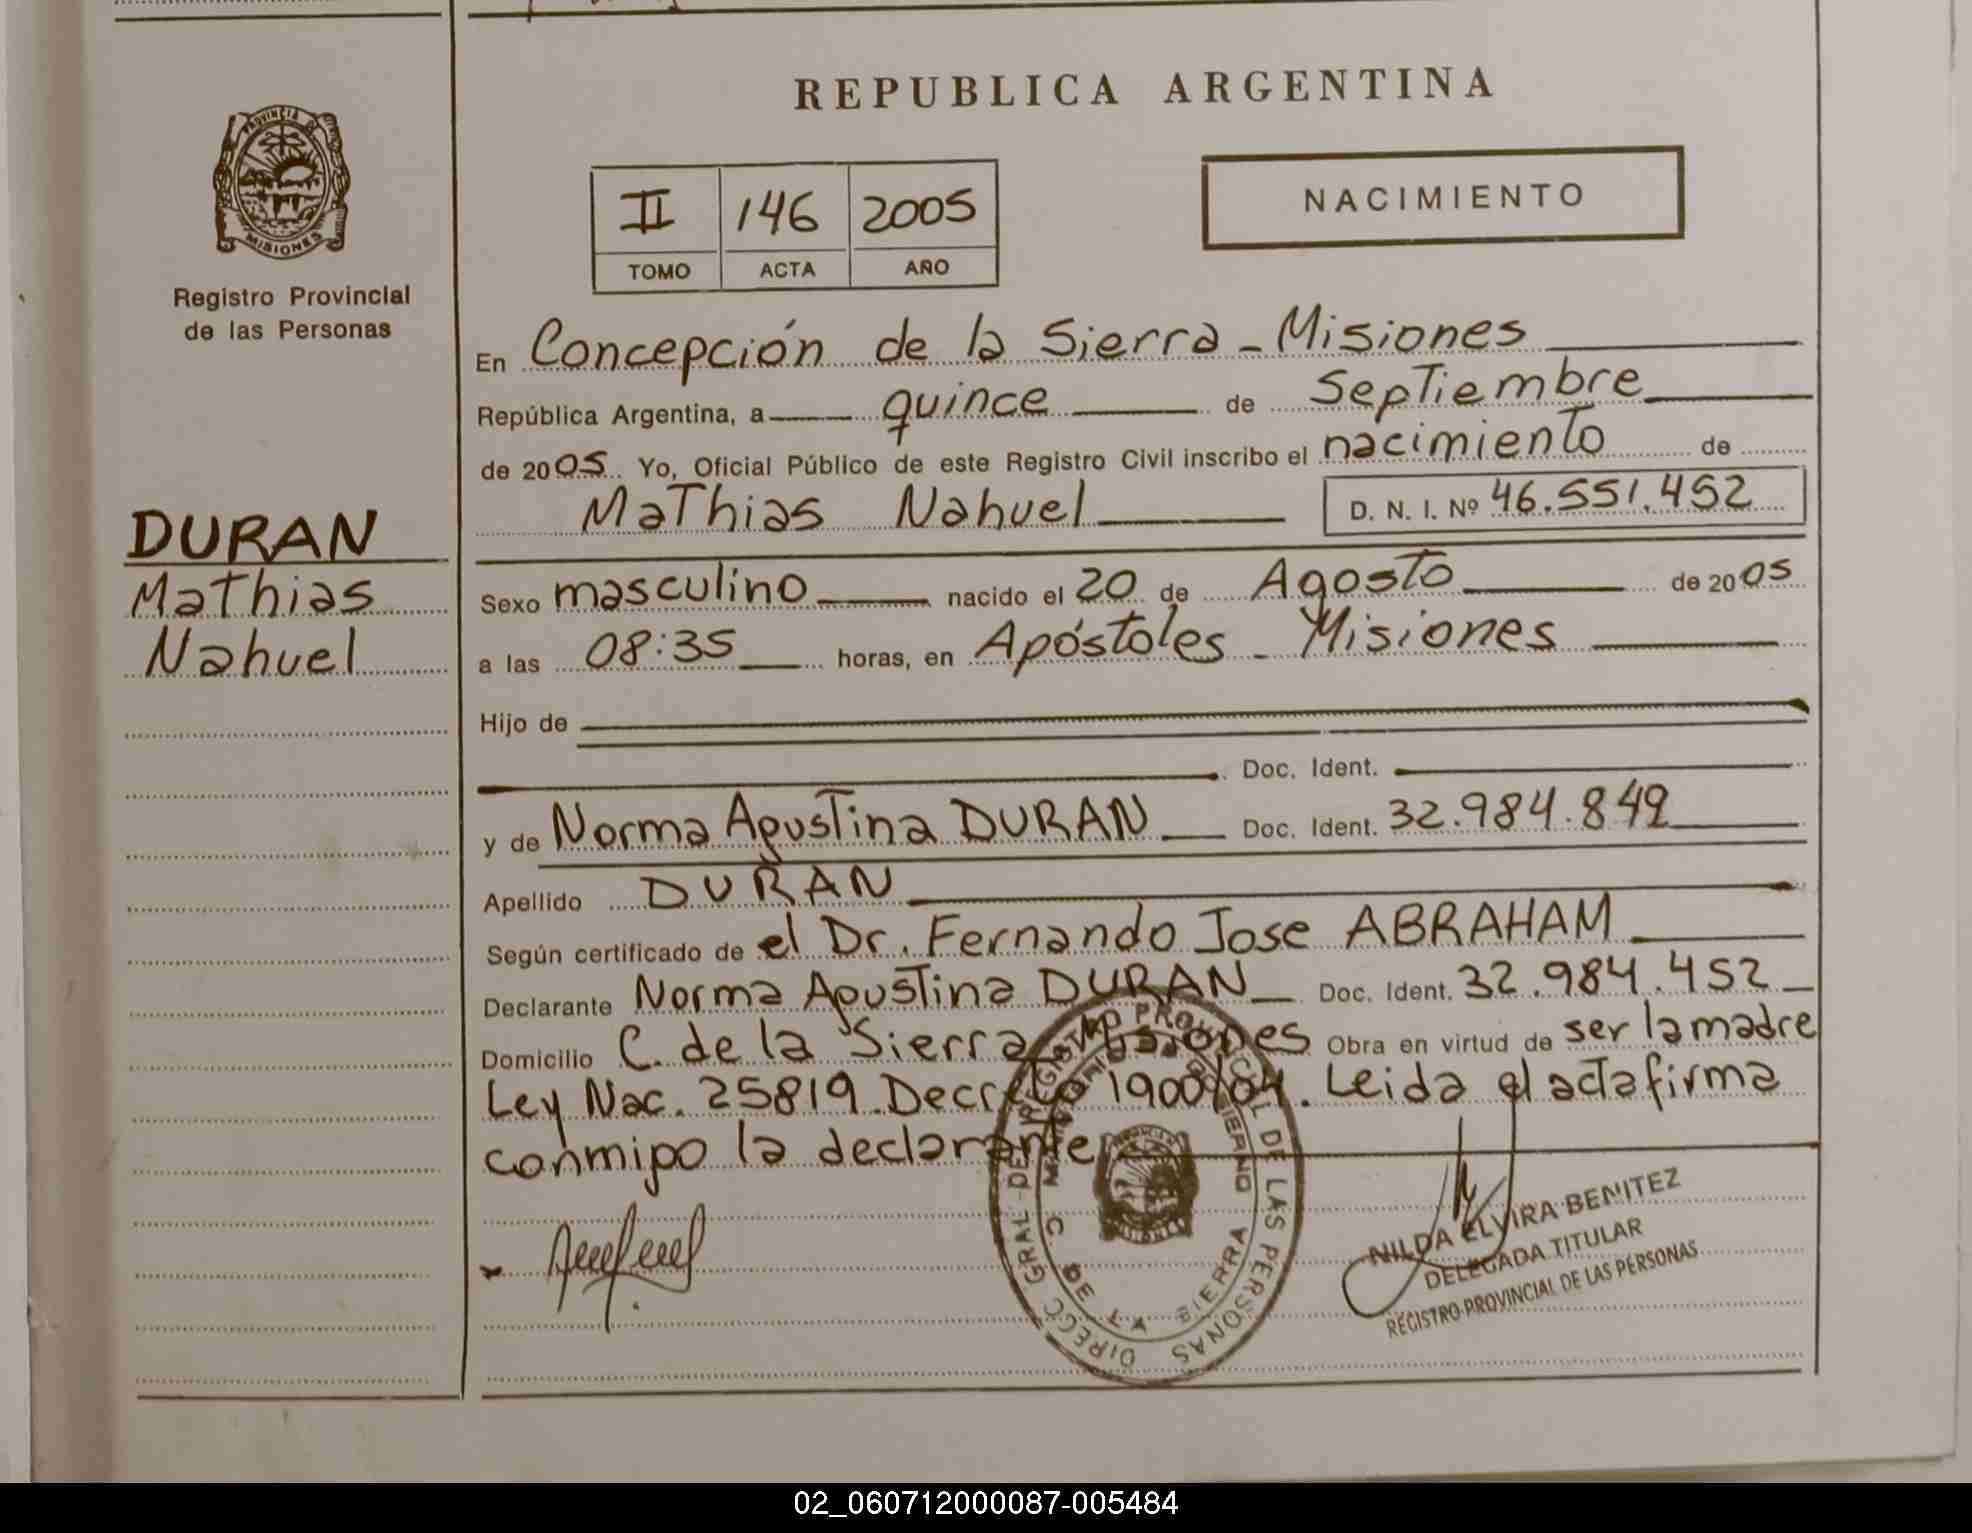 REPUBLICA ARGENTINA
PROVINCIA DE
MISIONES
Registro Provincial
de las Personas
II 146 2005
TOMO ACTA AÑO
NACIMIENTO
DURAN
Mathias
Nahuel
En Concepción de la Sierra - Misiones
República Argentina, a quince de Septiembre
de 2005 Yo, Oficial Público de este Registro Civil inscribo el nacimiento de
Mathias Nahuel D. N. I. Nº 46.551.452
Sexo masculino nacido el 20 de Agosto de 2005
a las 08:35 horas, en Apóstoles - Misiones
Hijo de
Doc. Ident.
y de Norma Agustina DURAN Doc. Ident. 32.984.849
Apellido DURAN
Según certificado de el Dr. Fernando Jose ABRAHAM
Declarante Norma Agustina DURAN Doc. Ident. 32.984.452
Domicilio C. de la Sierra - Misiones Obra en virtud de ser la madre
Ley Nac. 25819. Decreto 1900/04. Leida el acta firma
conmigo la declarante
DIRECC GRAL DEL REGISTRO PROVINCIAL DE LAS PERSONAS
C. DE LA SIERRA
NILDA ELVIRA BENITEZ
DELEGADA TITULAR
REGISTRO PROVINCIAL DE LAS PERSONAS
02_060712000087-005484